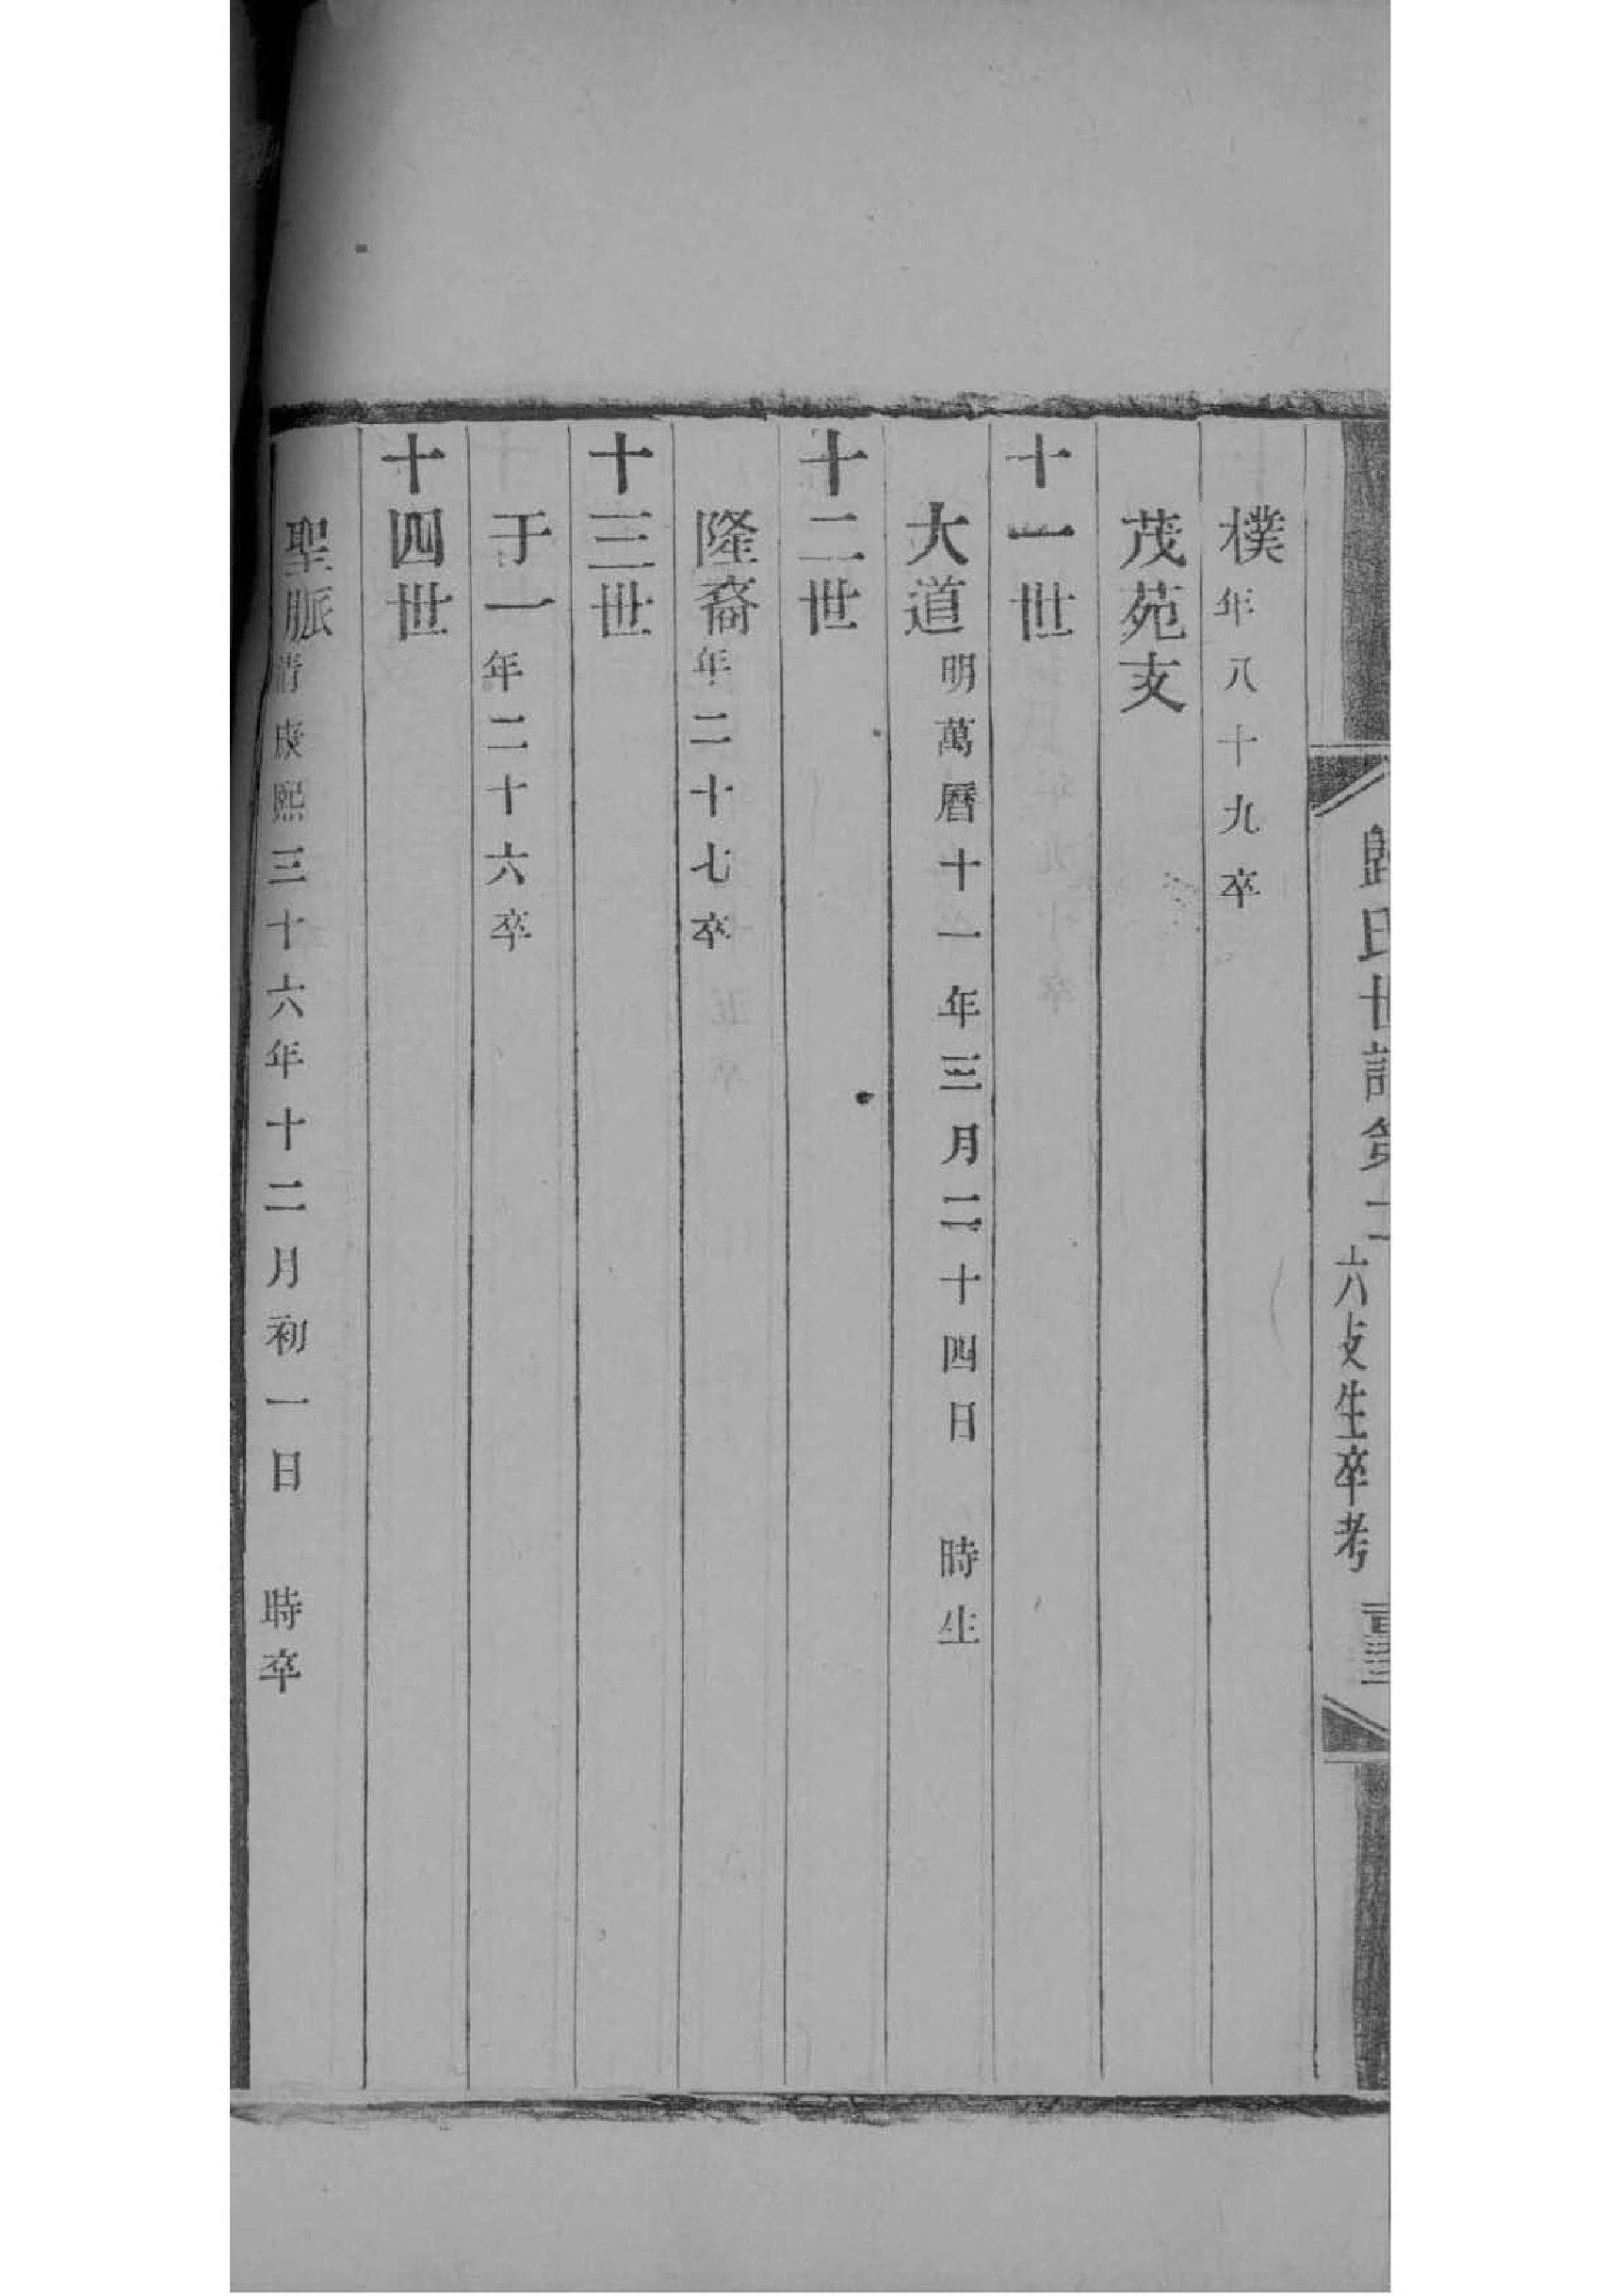 歸氏世譜第二 六攴生卒考
樸年八十九卒
茂苑支
十一世
大道明萬曆十一年三月二十四日　時生
十二世
隆裔年二十七卒
十三世
于一年二十六卒
十四世
聖脈清康熙三十六年十二月初一日　時卒